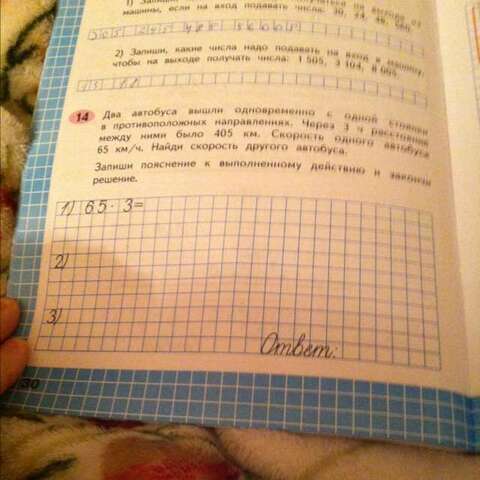 машины, если на вход подавать числа: 30, 24, 48, 560.
2) Запиши, какие числа надо подавать на вход в машину,
чтобы на выходе получать числа: 1 505, 3 104, 8 005.
14 Два автобуса вышли одновременно с одной стоянки
в противоположных направлениях. Через 3 ч расстояние
между ними было 405 км. Скорость одного автобуса
65 км/ч. Найди скорость другого автобуса.
Запиши пояснение к выполненному действию и закончи
решение.
1) 65 · 3 =
2)
3)
Ответ:
30